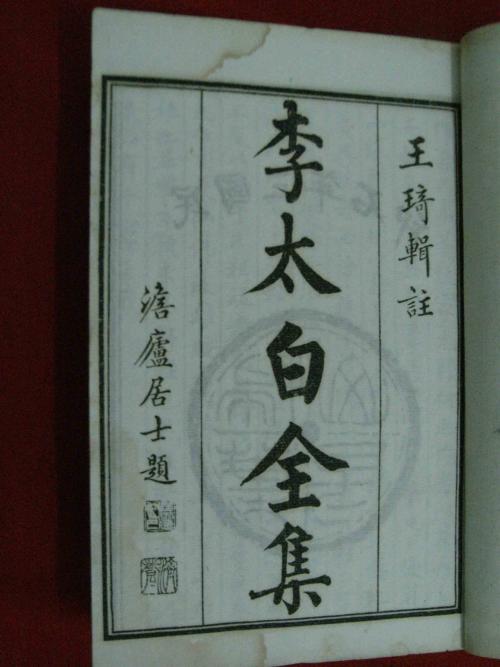 王琦輯註
李太白全集
澹廬居士題